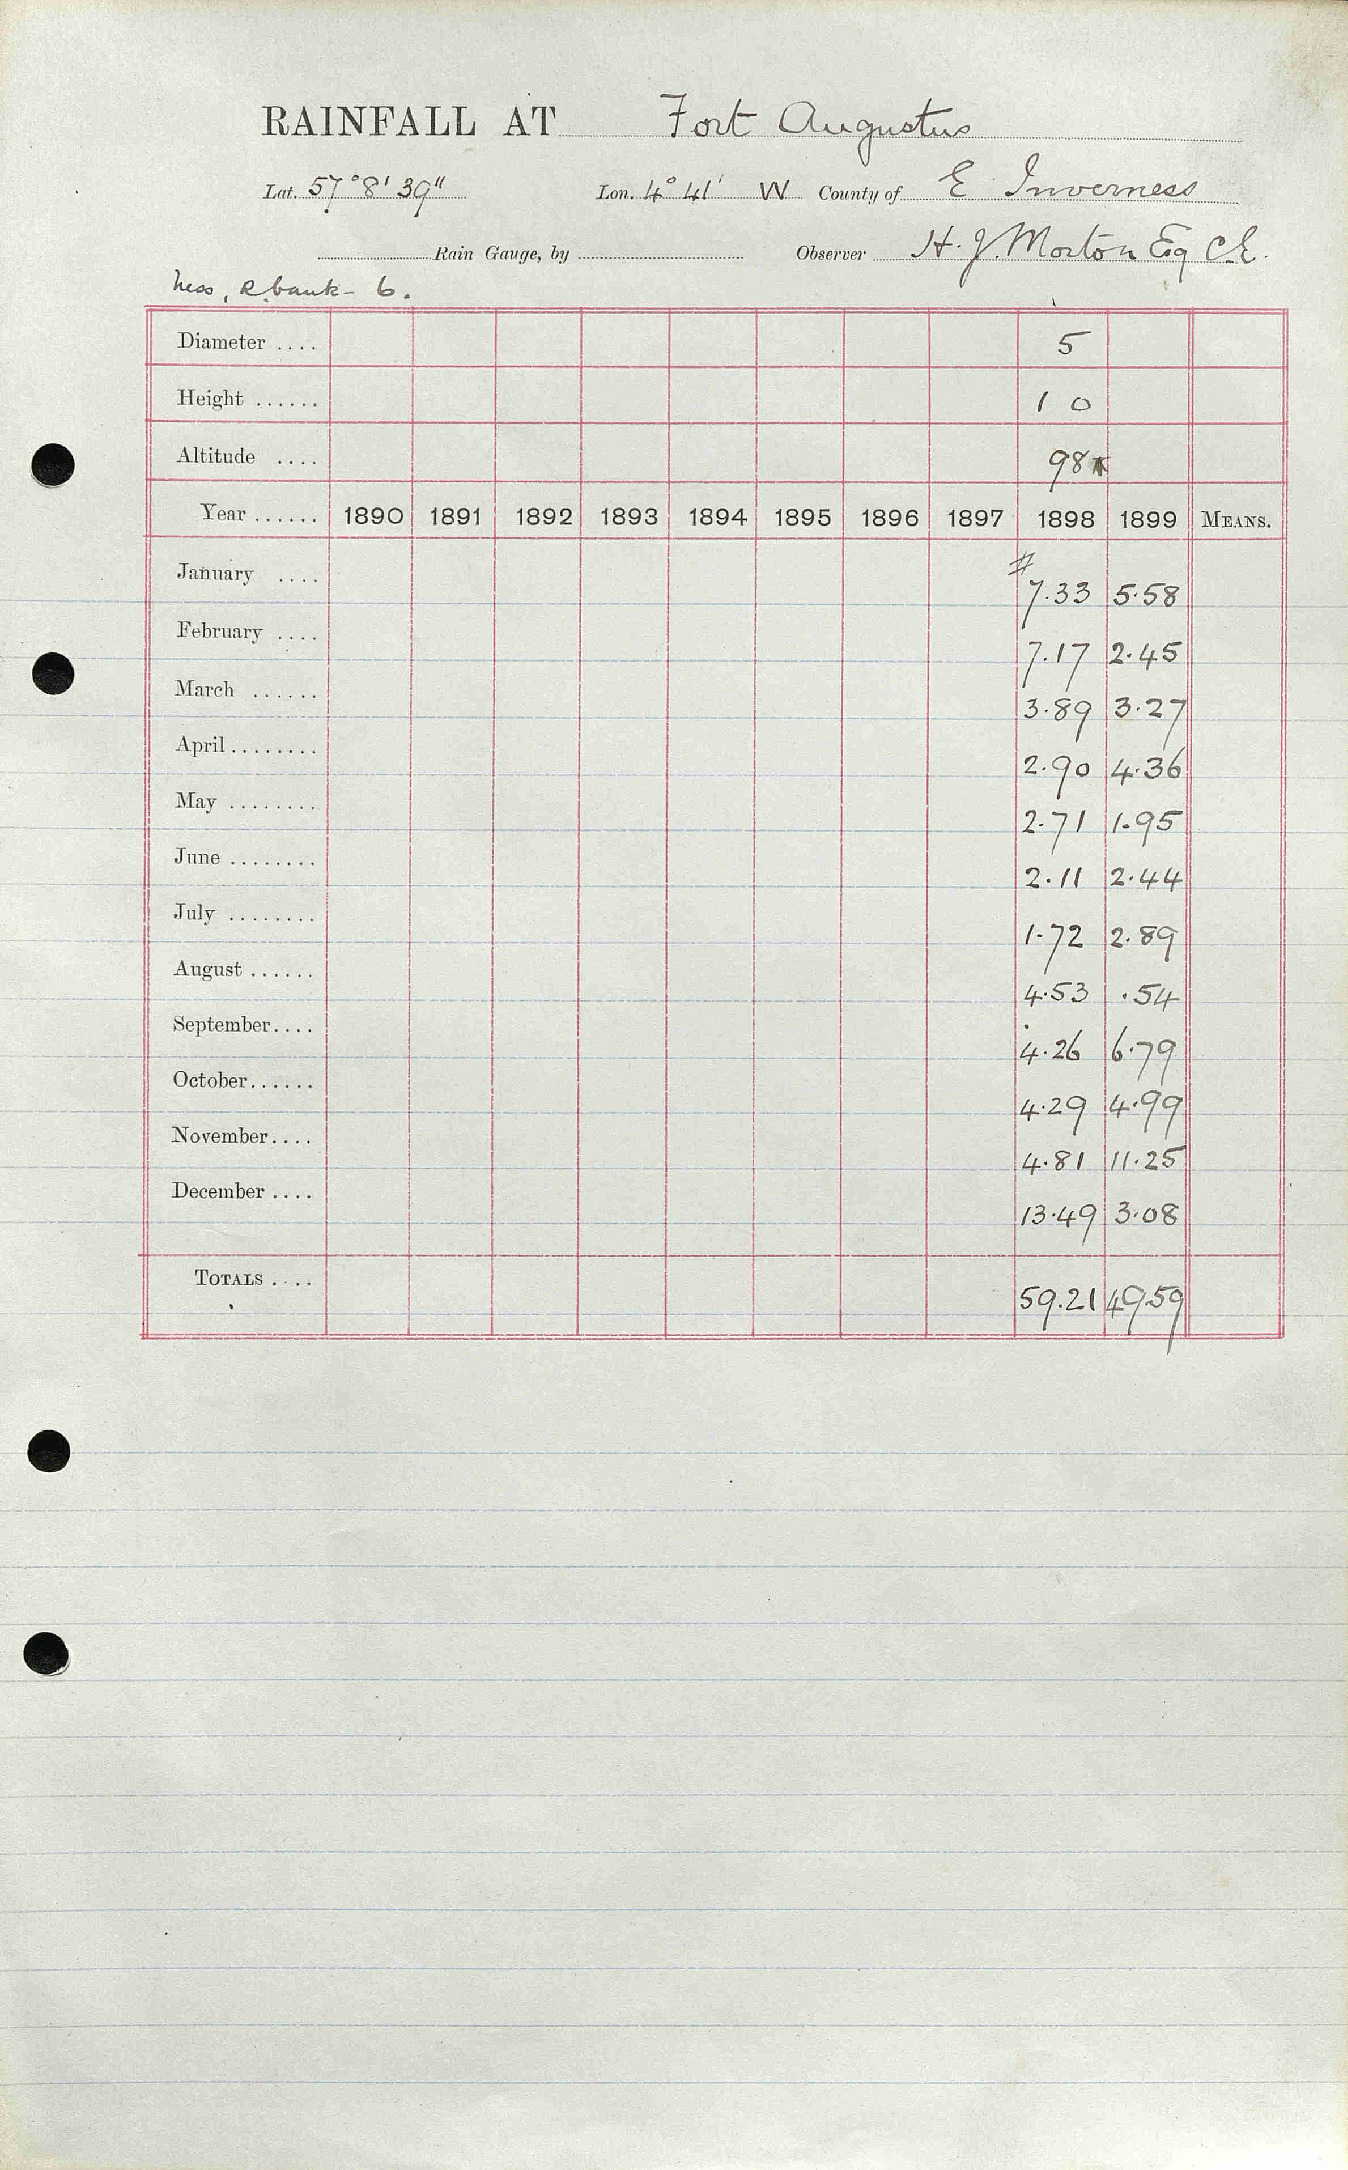 RAINFALL AT Fort Augustus
Lat. 57° 8' 39" Lon. 4° 41' W County of E Inverness
Rain Gauge, by Observer H. J. Morton Esq C.E.
Ness, R. bank - 6.
Diameter .... 5
Height ...... 1 0
Altitude .... 98
Year ...... 1890 1891 1892 1893 1894 1895 1896 1897 1898 1899 MEANS.
January .... # 7.33 5.58
February .... 7.17 2.45
March ...... 3.89 3.27
April ........ 2.90 4.36
May ........ 2.71 1.95
June ........ 2.11 2.44
July ........ 1.72 2.89
August ...... 4.53 .54
September.... 4.26 6.79
October...... 4.29 4.99
November.... 4.81 11.25
December .... 13.49 3.08
TOTALS .... 59.21 49.59